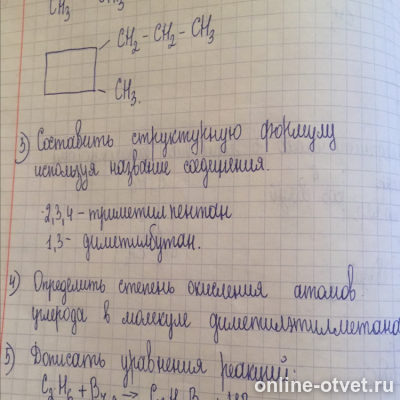 CH3 CH3
CH2 - CH2 - CH3
CH3.
3) Составить структурную формулу
используя название соединения.
2,3,4 - триметилпентан
1,3- диметилбутан.
4) Определить степень окисления атомов
углерода в молекуле диметилэтилметана
5) Дописать уравнения реакций:
C2H6 + Br2 →
online-otvet.ru